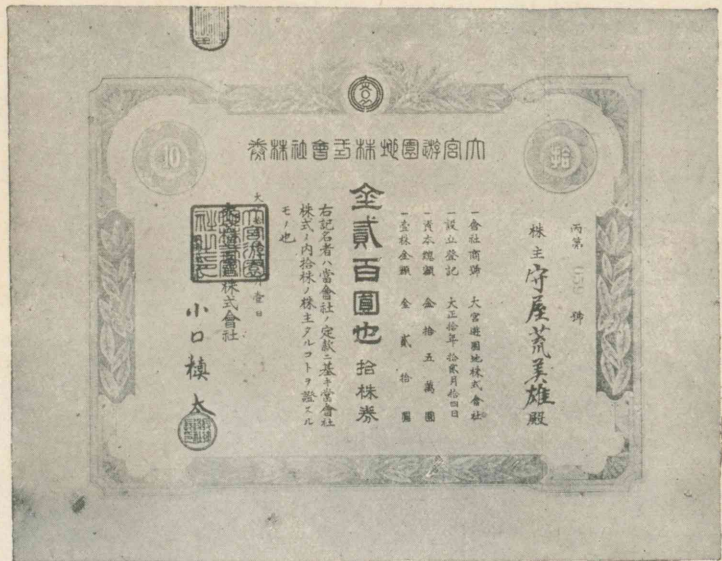 大宮遊園地株式會社株券
拾
10
丙第 號
株主 守屋荒美雄殿
一會社商號 大宮遊園地株式會社
一設立登記 大正拾年拾貳月拾四日
一資本總額 金拾五萬圓
一壹株金額 金貳拾圓
金貳百圓也 拾株券
右記名者ハ當會社ノ定款ニ基キ當會社
株式ノ内拾株ノ株主タルコトヲ證スル
モノ也
株式會社